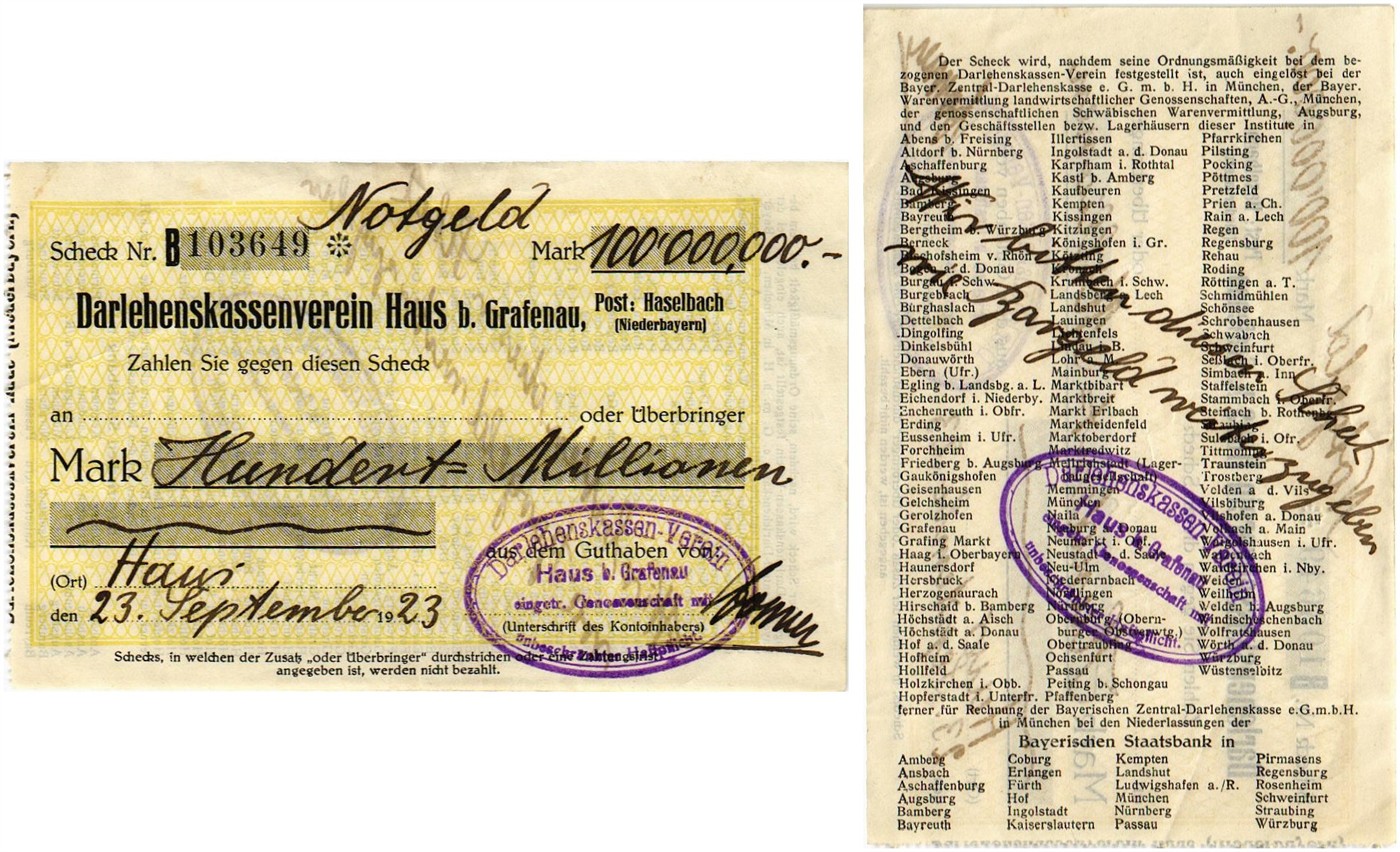 Notgeld
Scheck Nr. B 103649 Mark 100'000,000.-
Darlehenskassenverein Haus b. Grafenau, Post: Haselbach
(Niederbayern)
Zahlen Sie gegen diesen Scheck
an oder Überbringer
Mark Hundert= Millionen
aus dem Guthaben von
(Ort) Haus
den 23. September 1923
(Unterschrift des Kontoinhabers)
Schecks, in welchen der Zusatz „oder Überbringer" durchstrichen oder eine Zahlungsfrist
angegeben ist, werden nicht bezahlt.
Darlehenskassen-Verein
Haus b. Grafenau
eingetr. Genossenschaft mit
unbeschränkter Haftpflicht.
Der Scheck wird, nachdem seine Ordnungsmäßigkeit bei dem be-
zogenen Darlehenskassen-Verein festgestellt ist, auch eingelöst bei der
Bayer. Zentral-Darlehenskasse e. G. m. b. H. in München, der Bayer.
Warenvermittlung landwirtschaftlicher Genossenschaften, A.-G., München,
der genossenschaftlichen Schwäbischen Warenvermittlung, Augsburg,
und den Geschäftsstellen bezw. Lagerhäusern dieser Institute in
Abens b. Freising
Altdorf b. Nürnberg
Aschaffenburg
Augsburg
Bad Kissingen
Bamberg
Bayreuth
Bergtheim b. Würzburg
Berneck
Bischofsheim v. Rhön
Bogen a. d. Donau
Burgau i. Schw.
Burgebrach
Burghaslach
Dettelbach
Dingolfing
Dinkelsbühl
Donauwörth
Ebern (Ufr.)
Egling b. Landsbg. a. L.
Eichendorf i. Niederby.
Enchenreuth i. Obfr.
Erding
Eussenheim i. Ufr.
Forchheim
Friedberg b. Augsburg
Gaukönigshofen
Geisenhausen
Gelchsheim
Gerolzhofen
Grafenau
Grafing Markt
Haag i. Oberbayern
Haunersdorf
Hersbruck
Herzogenaurach
Hirschaid b. Bamberg
Höchstädt a. Aisch
Höchstädt a. Donau
Hof a. d. Saale
Hofheim
Hollfeld
Holzkirchen i. Obb.
Hopferstadt i. Unterfr.
Illertissen
Ingolstadt a. d. Donau
Karpfham i. Rothtal
Kastl b. Amberg
Kaufbeuren
Kempten
Kissingen
Kitzingen
Königshofen i. Gr.
Kötzting
Kronach
Krumbach i. Schw.
Landsberg a. Lech
Landshut
Lauingen
Lichtenfels
Lindau i. B.
Lohr a. M.
Mainburg
Marktbibart
Marktbreit
Markt Erlbach
Marktheidenfeld
Marktoberdorf
Marktredwitz
Mellrichstadt (Lager-
hausgesellschaft)
Memmingen
München
Naila
Neuburg a. Donau
Neumarkt i. O.
Neustadt a. d. Saale
Neu-Ulm
Niederarnbach
Nördlingen
Nürnberg
Obernburg (Obern-
burger Obstverwtg.)
Obertraubling
Ochsenfurt
Passau
Peiting b. Schongau
Pfaffenberg
Pfarrkirchen
Pilsting
Pocking
Pöttmes
Pretzfeld
Prien a. Ch.
Rain a. Lech
Regen
Regensburg
Rehau
Roding
Röttingen a. T.
Schmidmühlen
Schönsee
Schrobenhausen
Schwabach
Schweinfurt
Seßlach i. Oberfr.
Simbach a. Inn
Staffelstein
Stammbach i. Oberfr.
Steinach b. Rothenbg.
Straubing
Sulzbach i. Ofr.
Tittmoning
Traunstein
Trostberg
Velden a. d. Vils
Vilsbiburg
Vilshofen a. Donau
Volkach a. Main
Waigolshausen i. Ufr.
Waldkirchen i. Nby.
Weiden
Weilheim
Welden b. Augsburg
Windischeschenbach
Wolfratshausen
Wörth a. d. Donau
Würzburg
Wüstenselbitz
Wir bitten diesen Scheck
wie Bargeld weiterzugeben
Darlehenskassen-Verein
Haus b. Grafenau
eingetr. Genossenschaft mit
unbeschränkter Haftpflicht.
ferner für Rechnung der Bayerischen Zentral-Darlehenskasse e.G.m.b.H.
in München bei den Niederlassungen der
Bayerischen Staatsbank in
Amberg Coburg Kempten Pirmasens
Ansbach Erlangen Landshut Regensburg
Aschaffenburg Fürth Ludwigshafen a./R. Rosenheim
Augsburg Hof München Schweinfurt
Bamberg Ingolstadt Nürnberg Straubing
Bayreuth Kaiserslautern Passau Würzburg